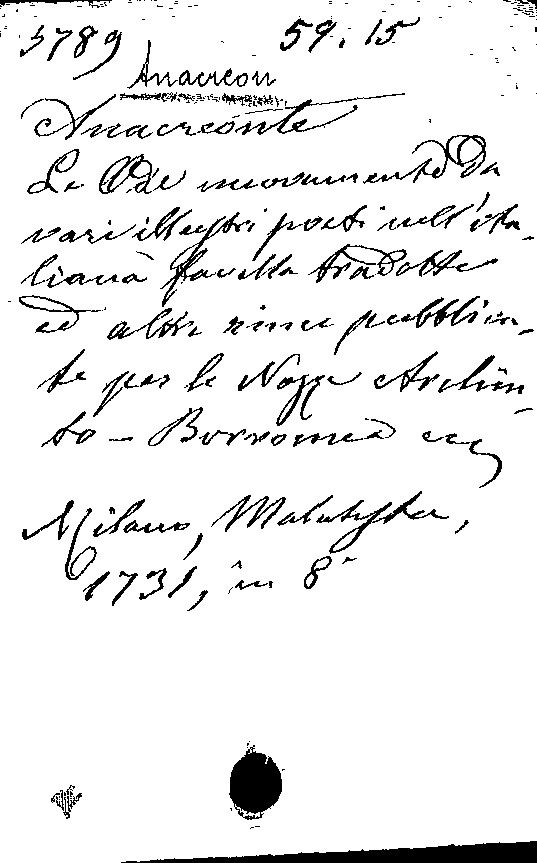 3789 59.15
Anacreon
Anacreonte
Le Ode nuovamente da
vari illustri poeti nell'ita-
liana favella tradotte
ed altre rime pubblica-
te per le Nozze Archin-
to - Borromeo ecc
Milano, Malatesta,
1731, in 8°